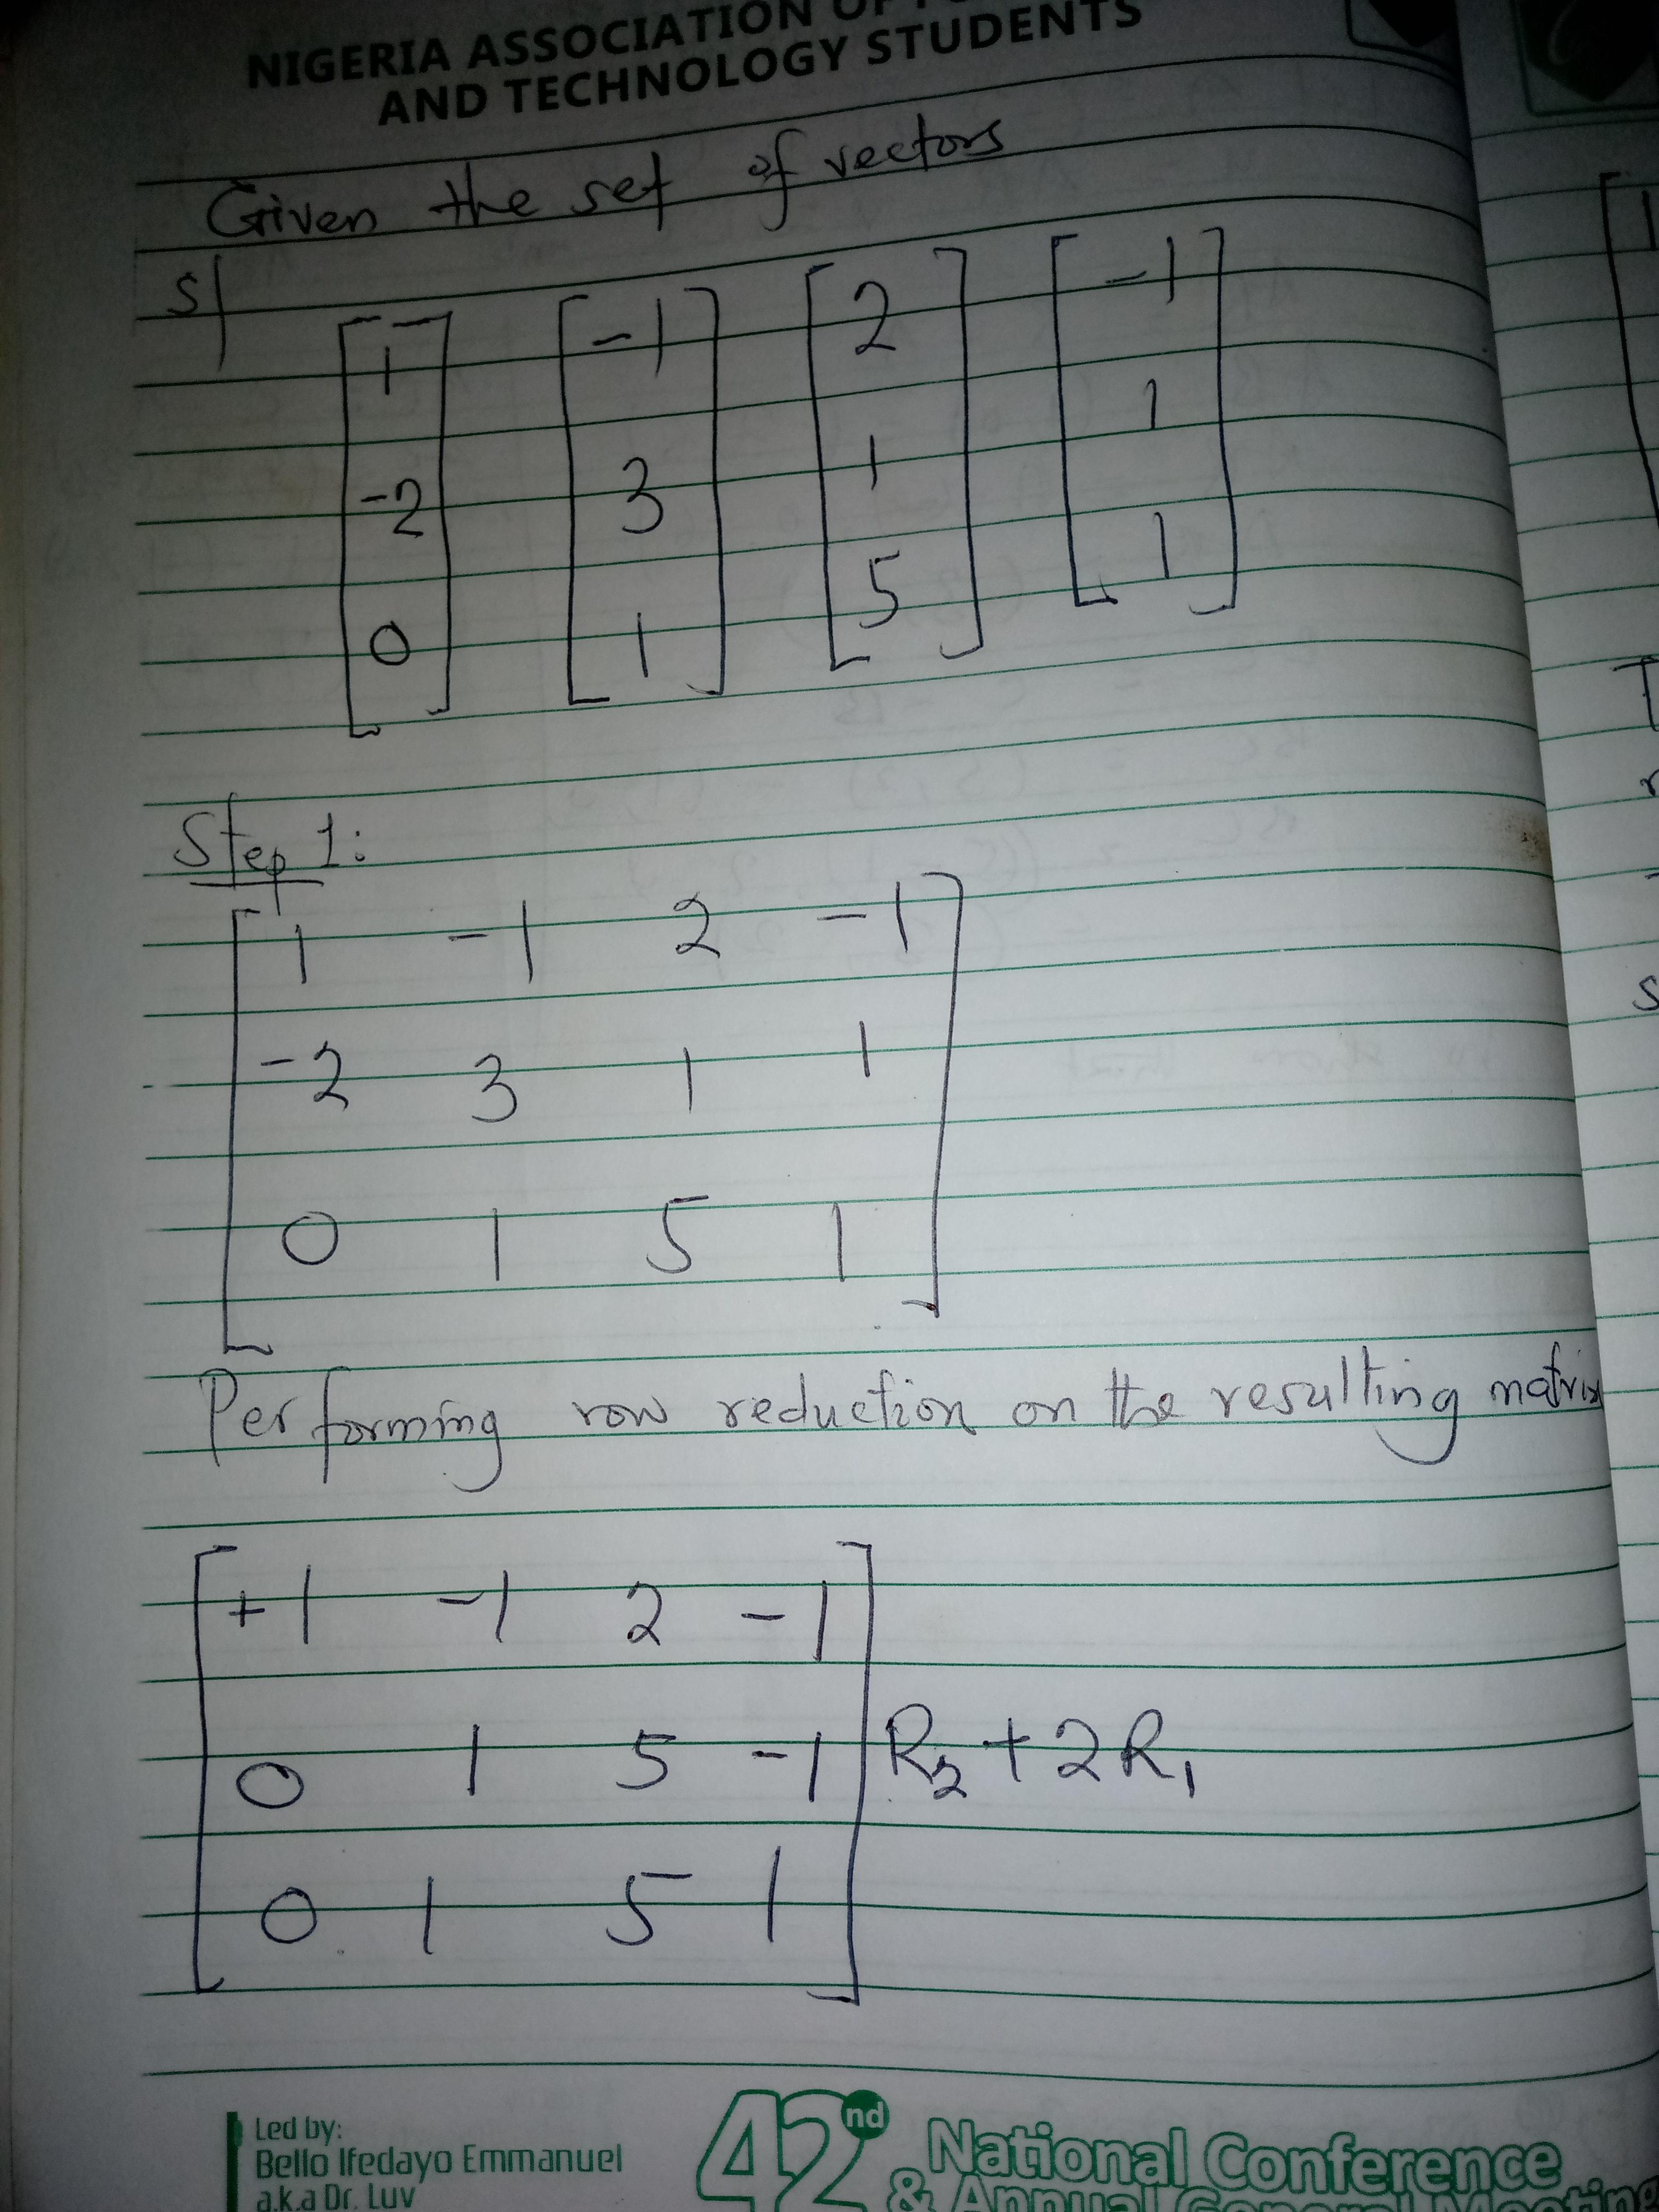 NIGERIA ASSOCIATION OF
AND TECHNOLOGY STUDENTS
Given the set of vectors
S|
[1 [-1 [2 [-1
-2 3 1 1
0] 1] 5] 1]
Step 1:
[1 -1 2 -1
-2 3 1 1
0 1 5 1]
Performing row reduction on the resulting matrix
[+1 -1 2 -1
0 1 5 -1 R2 + 2R1
0 1 5 1]
Led by:
Bello Ifedayo Emmanuel
a.k.a Dr. Luv
42nd National Conference
& Annual General Meeting